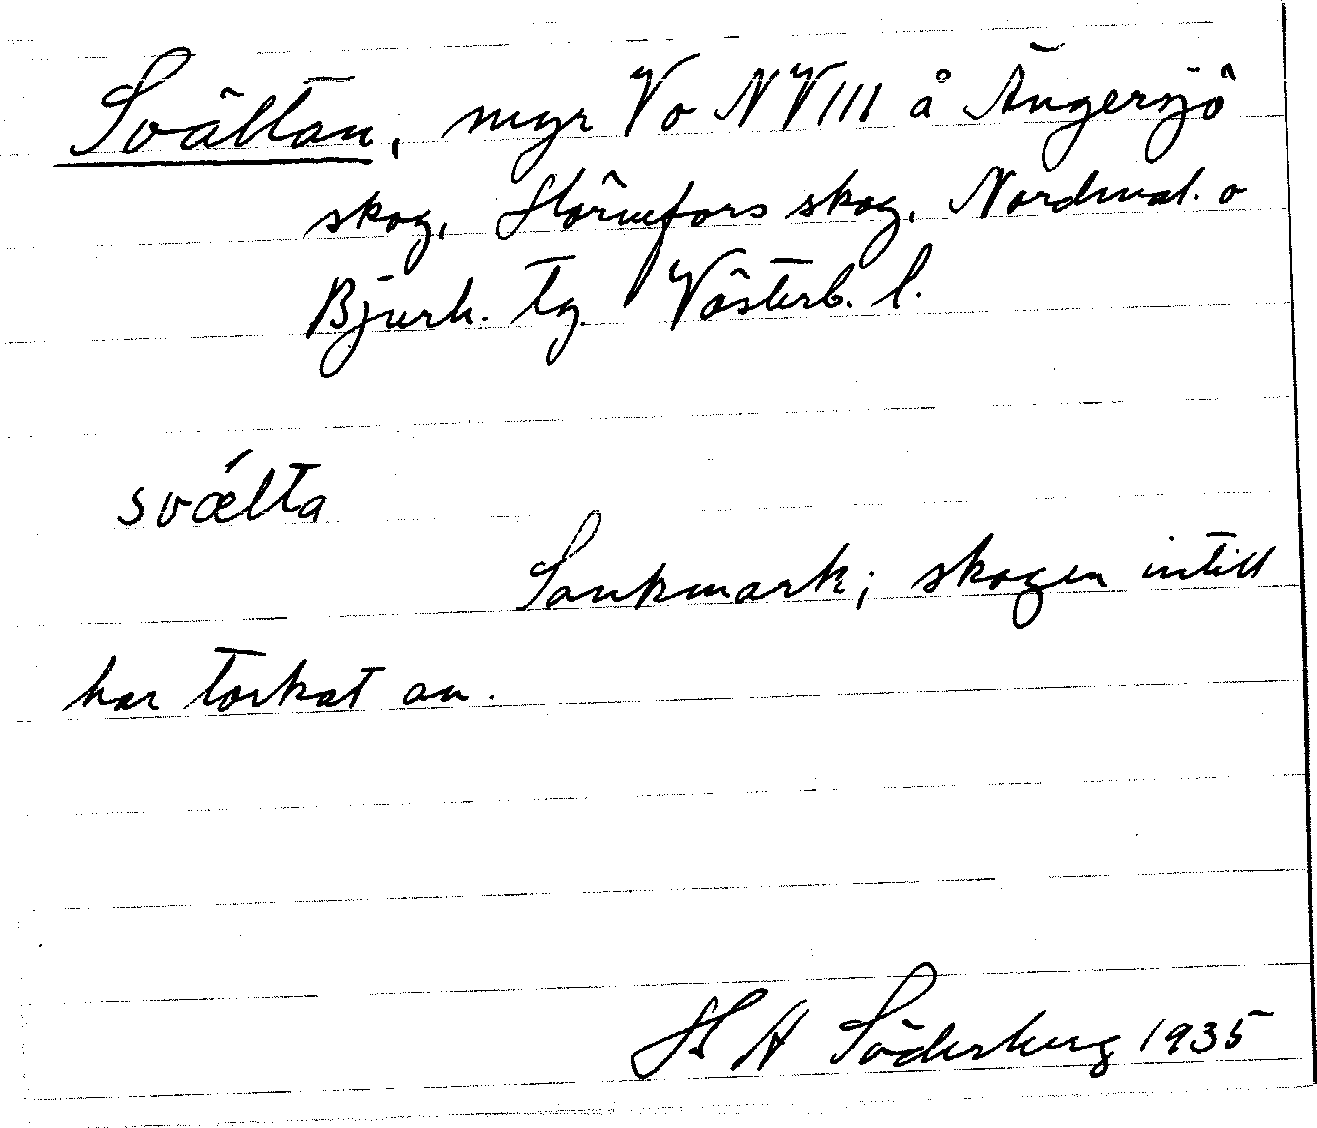 Svältan, myr Vo N VIII å Ängersjö
skog, Hörnefors skog, Nordmal. o
Bjurh. tg. Västerb. l.
svǽlta
Sankmark; skogen intill
har torkat an.
H A Söderberg 1935